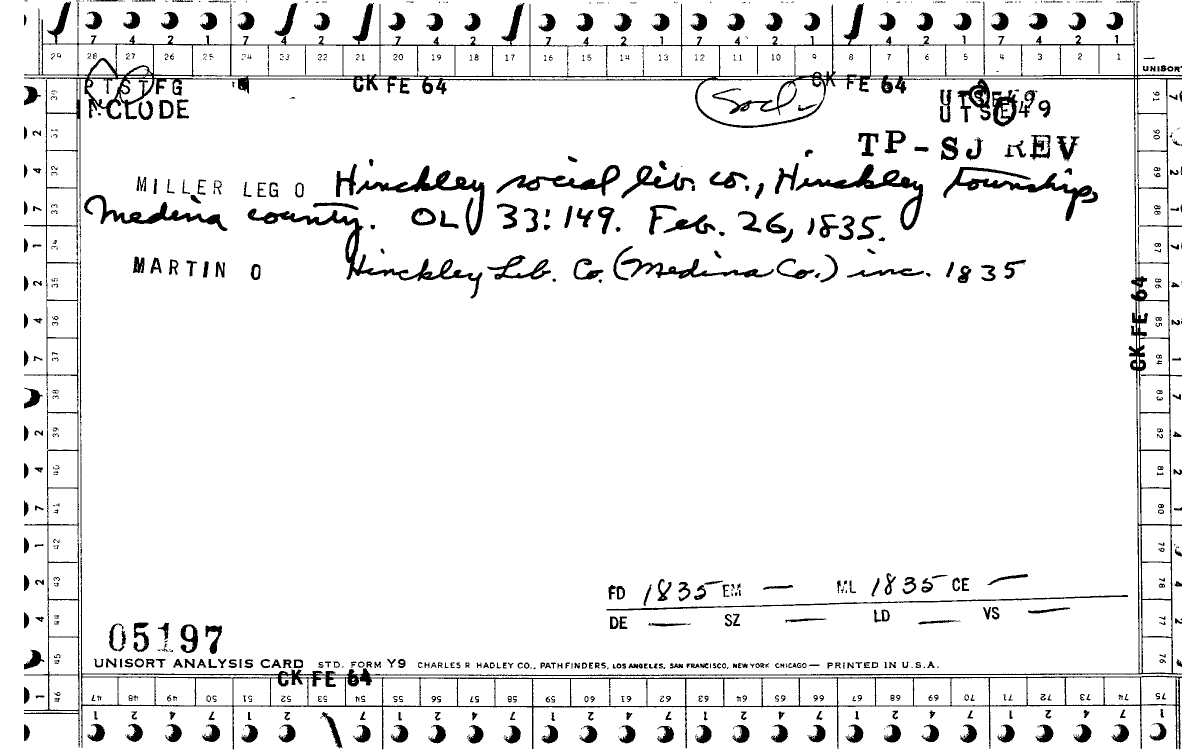 7 4 2 1 7 4 2 1 7 4 2 1 7 4 2 1 7 4 2 1 7 4 2 1 7 4 2 1
29 28 27 26 25 24 23 22 21 20 19 18 17 16 15 14 13 12 11 10 9 8 7 6 5 4 3 2 1
UNISORT
PTSTFG CK FE 64 Socl. CK FE 64 UTSE49
INCLODE UTSE49
TP-SJ REV
MILLER LEG O Hinckley social lib. co., Hinckley township,
Medina county. OL 33:149. Feb. 26, 1835.
MARTIN O Hinckley Lib. Co. (Medina Co.) inc. 1835
CK FE 64
FD 1835 EM — ML 1835 CE —
DE — SZ — LD — VS —
05197
UNISORT ANALYSIS CARD STD. FORM Y9 CHARLES R HADLEY CO., PATHFINDERS, LOS ANGELES, SAN FRANCISCO, NEW YORK CHICAGO — PRINTED IN U.S.A.
CK FE 64
47 48 49 50 51 52 53 54 55 56 57 58 59 60 61 62 63 64 65 66 67 68 69 70 71 72 73 74 75
1 2 4 7 1 2 4 7 1 2 4 7 1 2 4 7 1 2 4 7 1 2 4 7 1 2 4 7 1